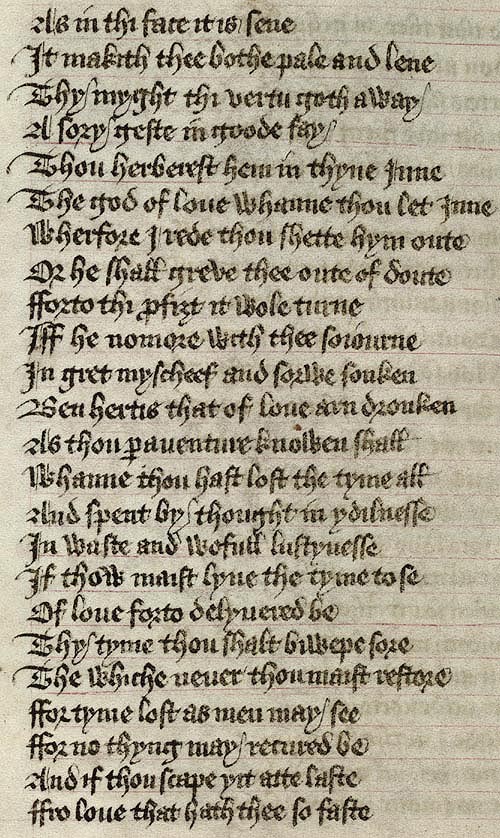 As in thi face it is sene
It makith thee bothe pale and lene
Thy myght thi vertu goth away
A sory geste in goode fay
Thou herberest hem in thyne Inne
The god of loue whanne thou let Inne
Wherfore I rede thou shette hym oute
Or he shall greve thee oute of doute
fforto thi ꝓfizt it wole turne
Iff he nomore with thee soiourne
In gret myscheef and sorwe sonken
Ben hertis that of loue arn dronken
As thou ꝑauenture knowen shall
Whanne thou hast lost the tyme all
And spent by thought in ydilnesse
In waste and wofull lustynesse
If thow maist lyue the tyme to se
Of loue forto delyuered be
Thy tyme thou shalt biwepe sore
The whiche neuer thou maist restore
ffor tyme lost as men may see
ffor no thyng may recured be
And if thou scape yit atte laste
ffro loue that hath thee so faste